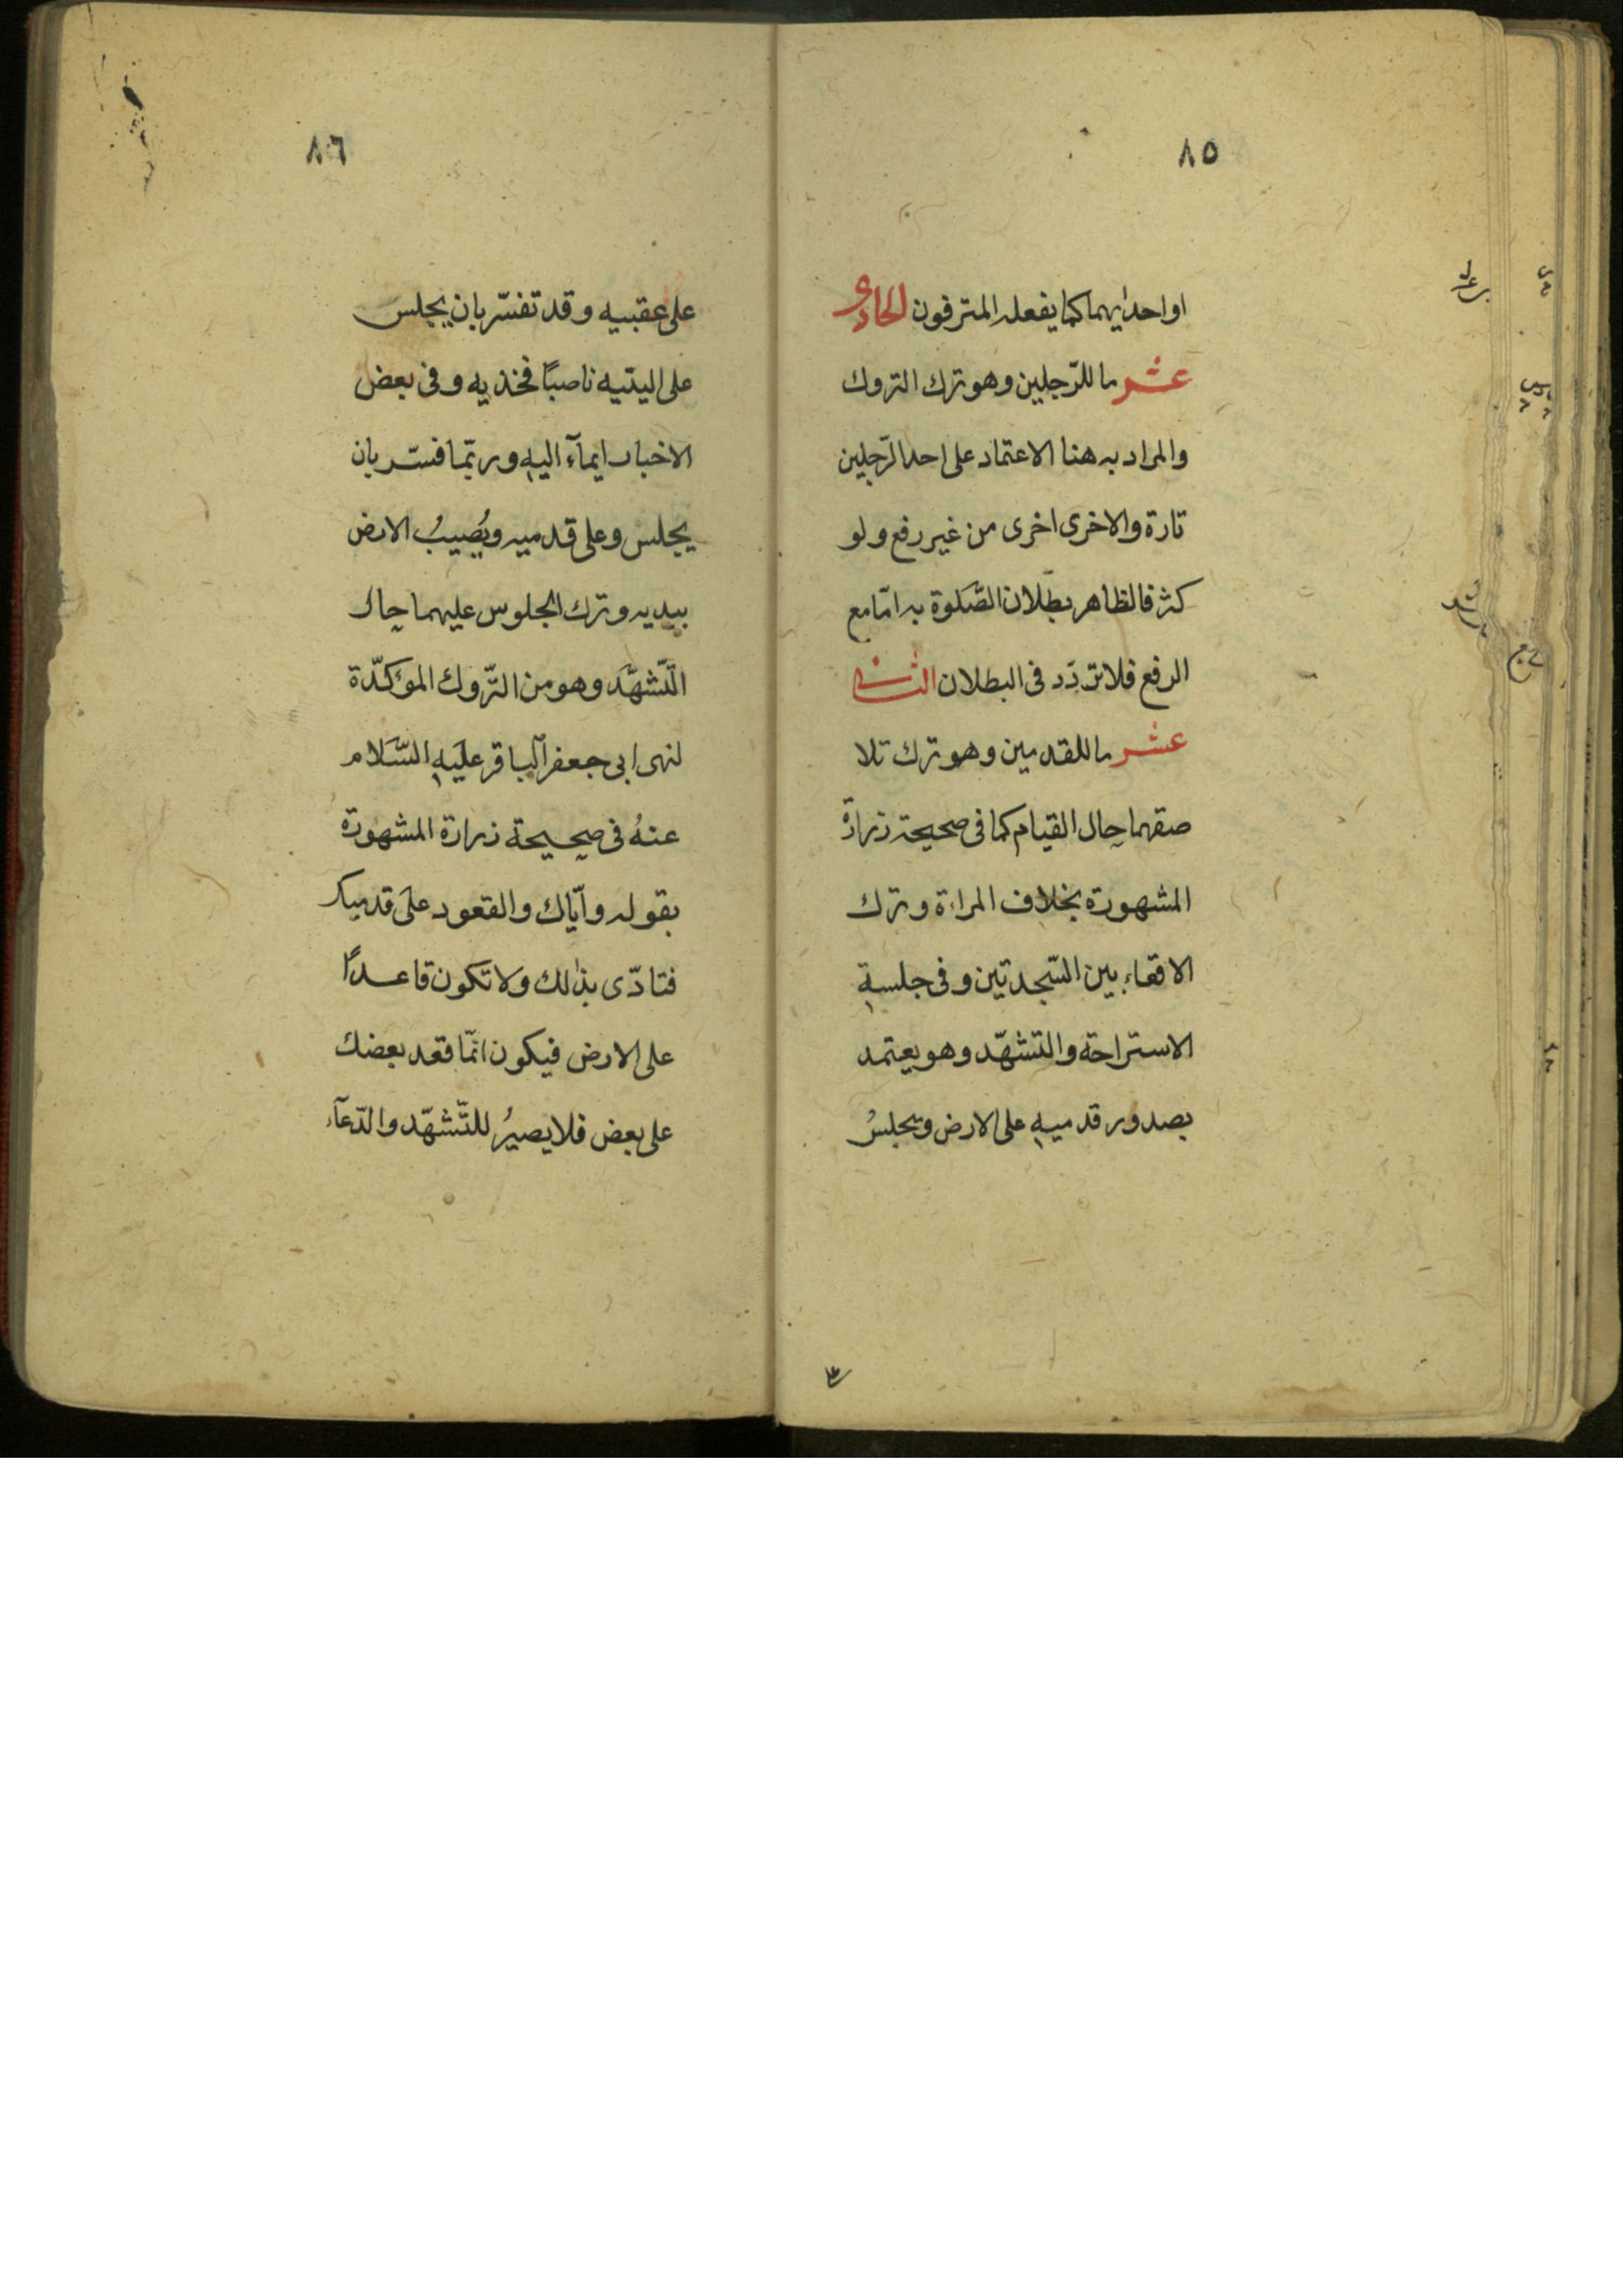 ٨٥
او احدٰيهما كما يفعله المترفون الحادى
عشر ما للرّجلين وهو ترك التروك
والمراد به هنا الاعتماد على احد الرّجلين
تارة والاخرى اخرى من غير رفع ولو
كثر فالظاهر بطلان الصّلوة به امّا مع
الرفع فلا تردّد فى البطلان الثانى
عشر ما للقدمين وهو ترك تلا
صقهما حال القيام كما فى صحيحة زرارة
المشهورة بخلاف المراءة وترك
الاقعاء بين السّجدتين وفى جلسةِ
الاستراحة والتشهّد وهو يعتمد
بصدور قدميهِ على الارض ويجلسُ
٨٦
على عقبيه وقد تفسّر بان يجلس
على اليتيه ناصبًا فخذيه وفى بعض
الاخبار ايمآء اليهِ وربّما فسّر بان
يجلس وعلى قدميه ويُصِيبُ الارض
بيديه وترك الجلوس عليهما حال
التّشهّد وهو من التّروك المؤكّدة
لنهى ابى جعفر الباقر عليهِ السّلام
عنهُ فى صحيحة زرارة المشهورة
بقوله وايّاك والقعود على قدميك
فتاذّى بذٰلك ولا تكون قاعدًا
على الارض فيكون انّما قعد بعضك
على بعض فلا يصيرُ للتّشهّد والدّعآء